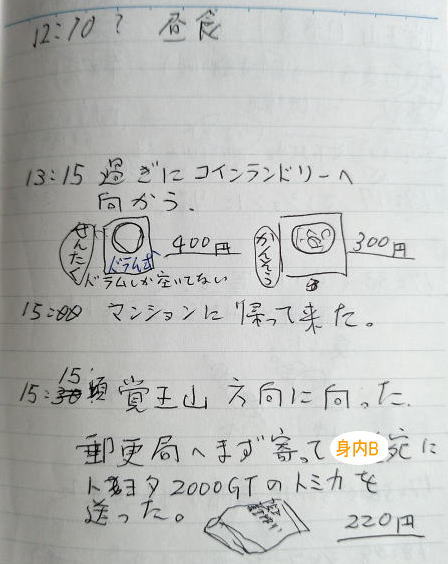 12:10? 昼食
13:15 過ぎにコインランドリーへ
向かう.
せんたく ドラム式 400円 かんそう 300円
ドラムしか空いてない
15:00 マンションに帰って来た。
15:15 頃 覚王山方向に向った.
郵更局へまず寄って 身内B 宛に
トヨタ2000GTのトミカを
送った。
220円